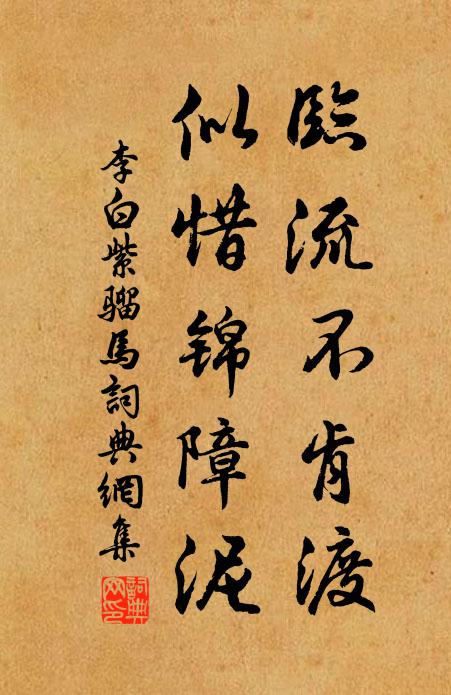 臨流不肯渡
似惜錦障泥
李白紫騮馬詞典網集
詞典网印